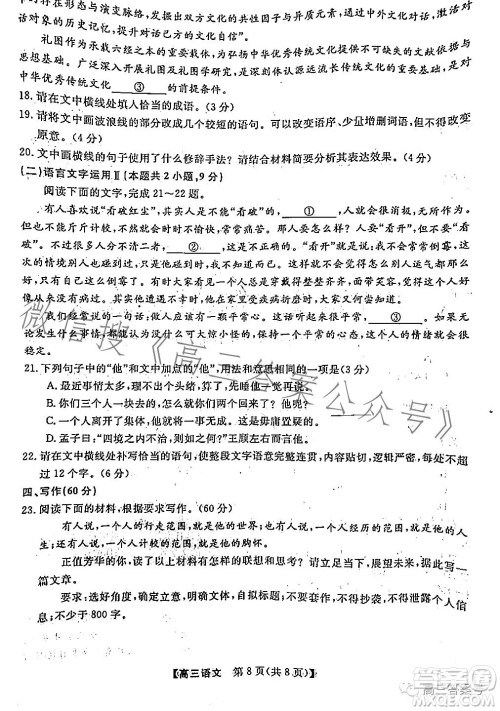 中的存在形态与演变脉络，也可以发掘双方文化的共性因子与异质元素，通过中外文化对话，激活对
话对象的历史记忆。
礼图作为承载六经之本的重要载体，为弘扬中华优秀传统文化提供了不可或缺的文献支撑与
思想基础。不断深入开展礼图及礼图学研究，是深刻体认源远流长传统文化的重要途径，也是对
中华优秀传统文化 ③ 的前提条件。
18. 请在文中横线处填入恰当的成语。（3 分）
19. 请将文中画波浪线的部分改成几个较短的语句。可以改变语序、少量增删词语，但不得改变
原意。（4 分）
20. 文中画横线的句子使用了什么修辞手法？请结合材料简要分析其表达效果。（4 分）
（二）语言文字运用Ⅱ（本题共 2 小题，9 分）
阅读下面的文字，完成 21～22 题。
有人喜欢说“看破红尘”，其实人是不能“看破”的， ① 。一个人就会很消极，无所作
为，但是凡事都看不破也会觉得非常苦。那么人要怎么办呢？人要“看开”，但不要“看破”。
很多人分不清二者， ② 。“看开”就是告诉自己，我也是平常人，我也会常常倒霉，
他碰到的情境别人也会碰到，只是他碰到时，我们不知道而已。我们总是觉得别人运气都那么
好，只有自己这么倒霉，其实不是。一个人在家里憋久疾病折磨得很痛苦时，去医院看看就会好
很多。
我们常常说，做人最要紧的是感觉，就是因为凡事要“看开”。这话讲起来简单，做起来很难。
发生一些事情时，你要想这没有什么可大惊小怪的，把自己当作一个平常的人， ③ ，还
有什么看不开的呢？
21. 下列句子中的“他”和文中加点的“他”，用法和意义相同的一项是（3 分）
A. 最近的烦心事太多了，先睡他一觉再说。
B. 你把这件事情都推给他，你自己干什么呢？
C. 他们都各忙各的，谁也不去注意他。
D. 孟子曰：“四境之内不治，则如之何？”王顾左右而言他。
22. 请在文中横线处补写恰当的语句，使整段文字语意完整连贯，内容贴切，逻辑严密，每处不超
过 12 个字。（6 分）
四、写作(60 分)
23. 阅读下面的材料，根据要求写作。（60 分）
有人说，一个人的行走范围，就是他的世界；也有人说，一个人的阅读范围，就是他的世界；
还有人说，一个人经历的范围，就是他的世界……
正值芳华的你，读了以上材料有怎样的联想和思考？请立足当下，展望未来，写一
篇文章。
要求：选好角度，确定立意，明确文体，自拟标题；不要套作，不得抄袭；不得泄露个人信
息；不少于 800 字。
【高三语文 第 8 页（共 8 页）】
微信搜《高三答案公众号》
高三答案号